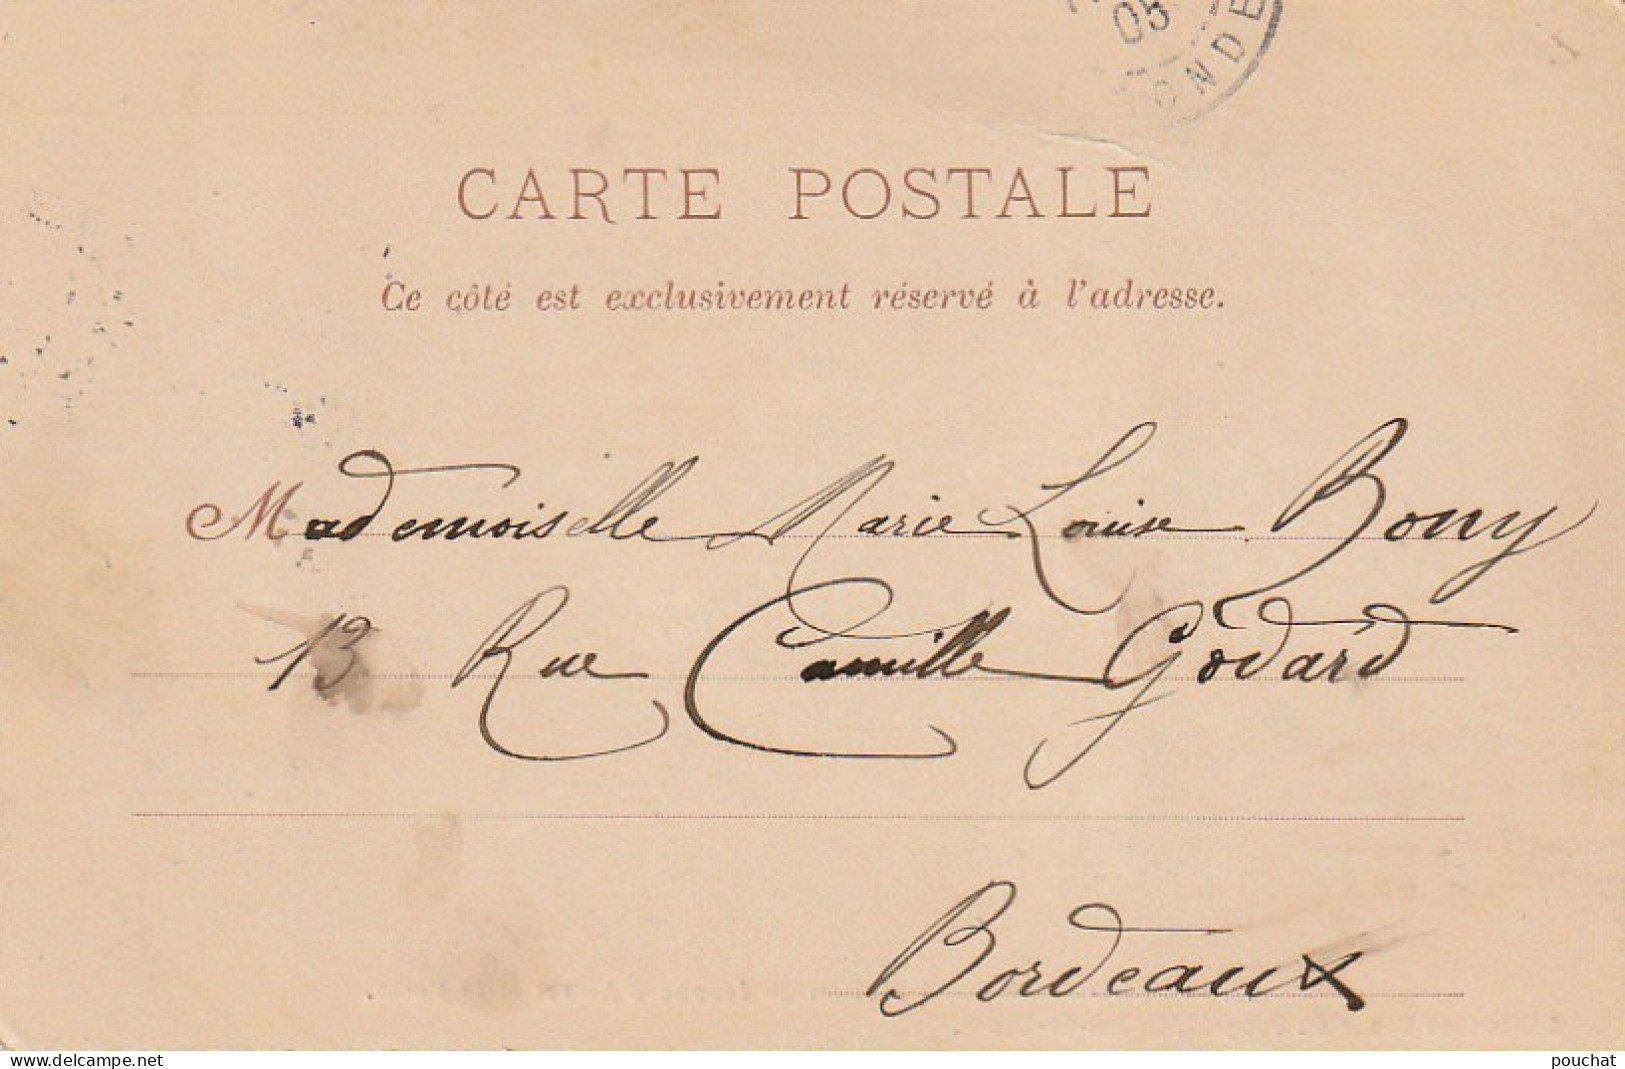 05
ONDE
CARTE POSTALE
Ce côté est exclusivement réservé à l'adresse.
Mademoiselle Marie Louise Bony
13 Rue Camille Godard
Bordeaux
www.delcampe.net
pouchat